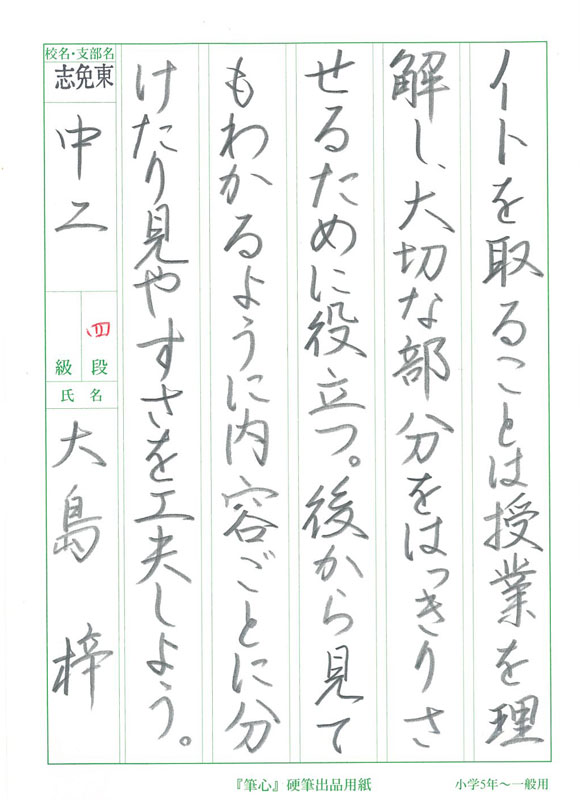 ノートを取ることは授業を理
解し、大切な部分をはっきりさ
せるために役立つ。後から見て
もわかるように内容ごとに分
けたり見やすさを工夫しよう。
校名・支部名
志免東
中二
四段
級
氏名
大島 梓
『筆心』硬筆出品用紙
小学5年〜一般用